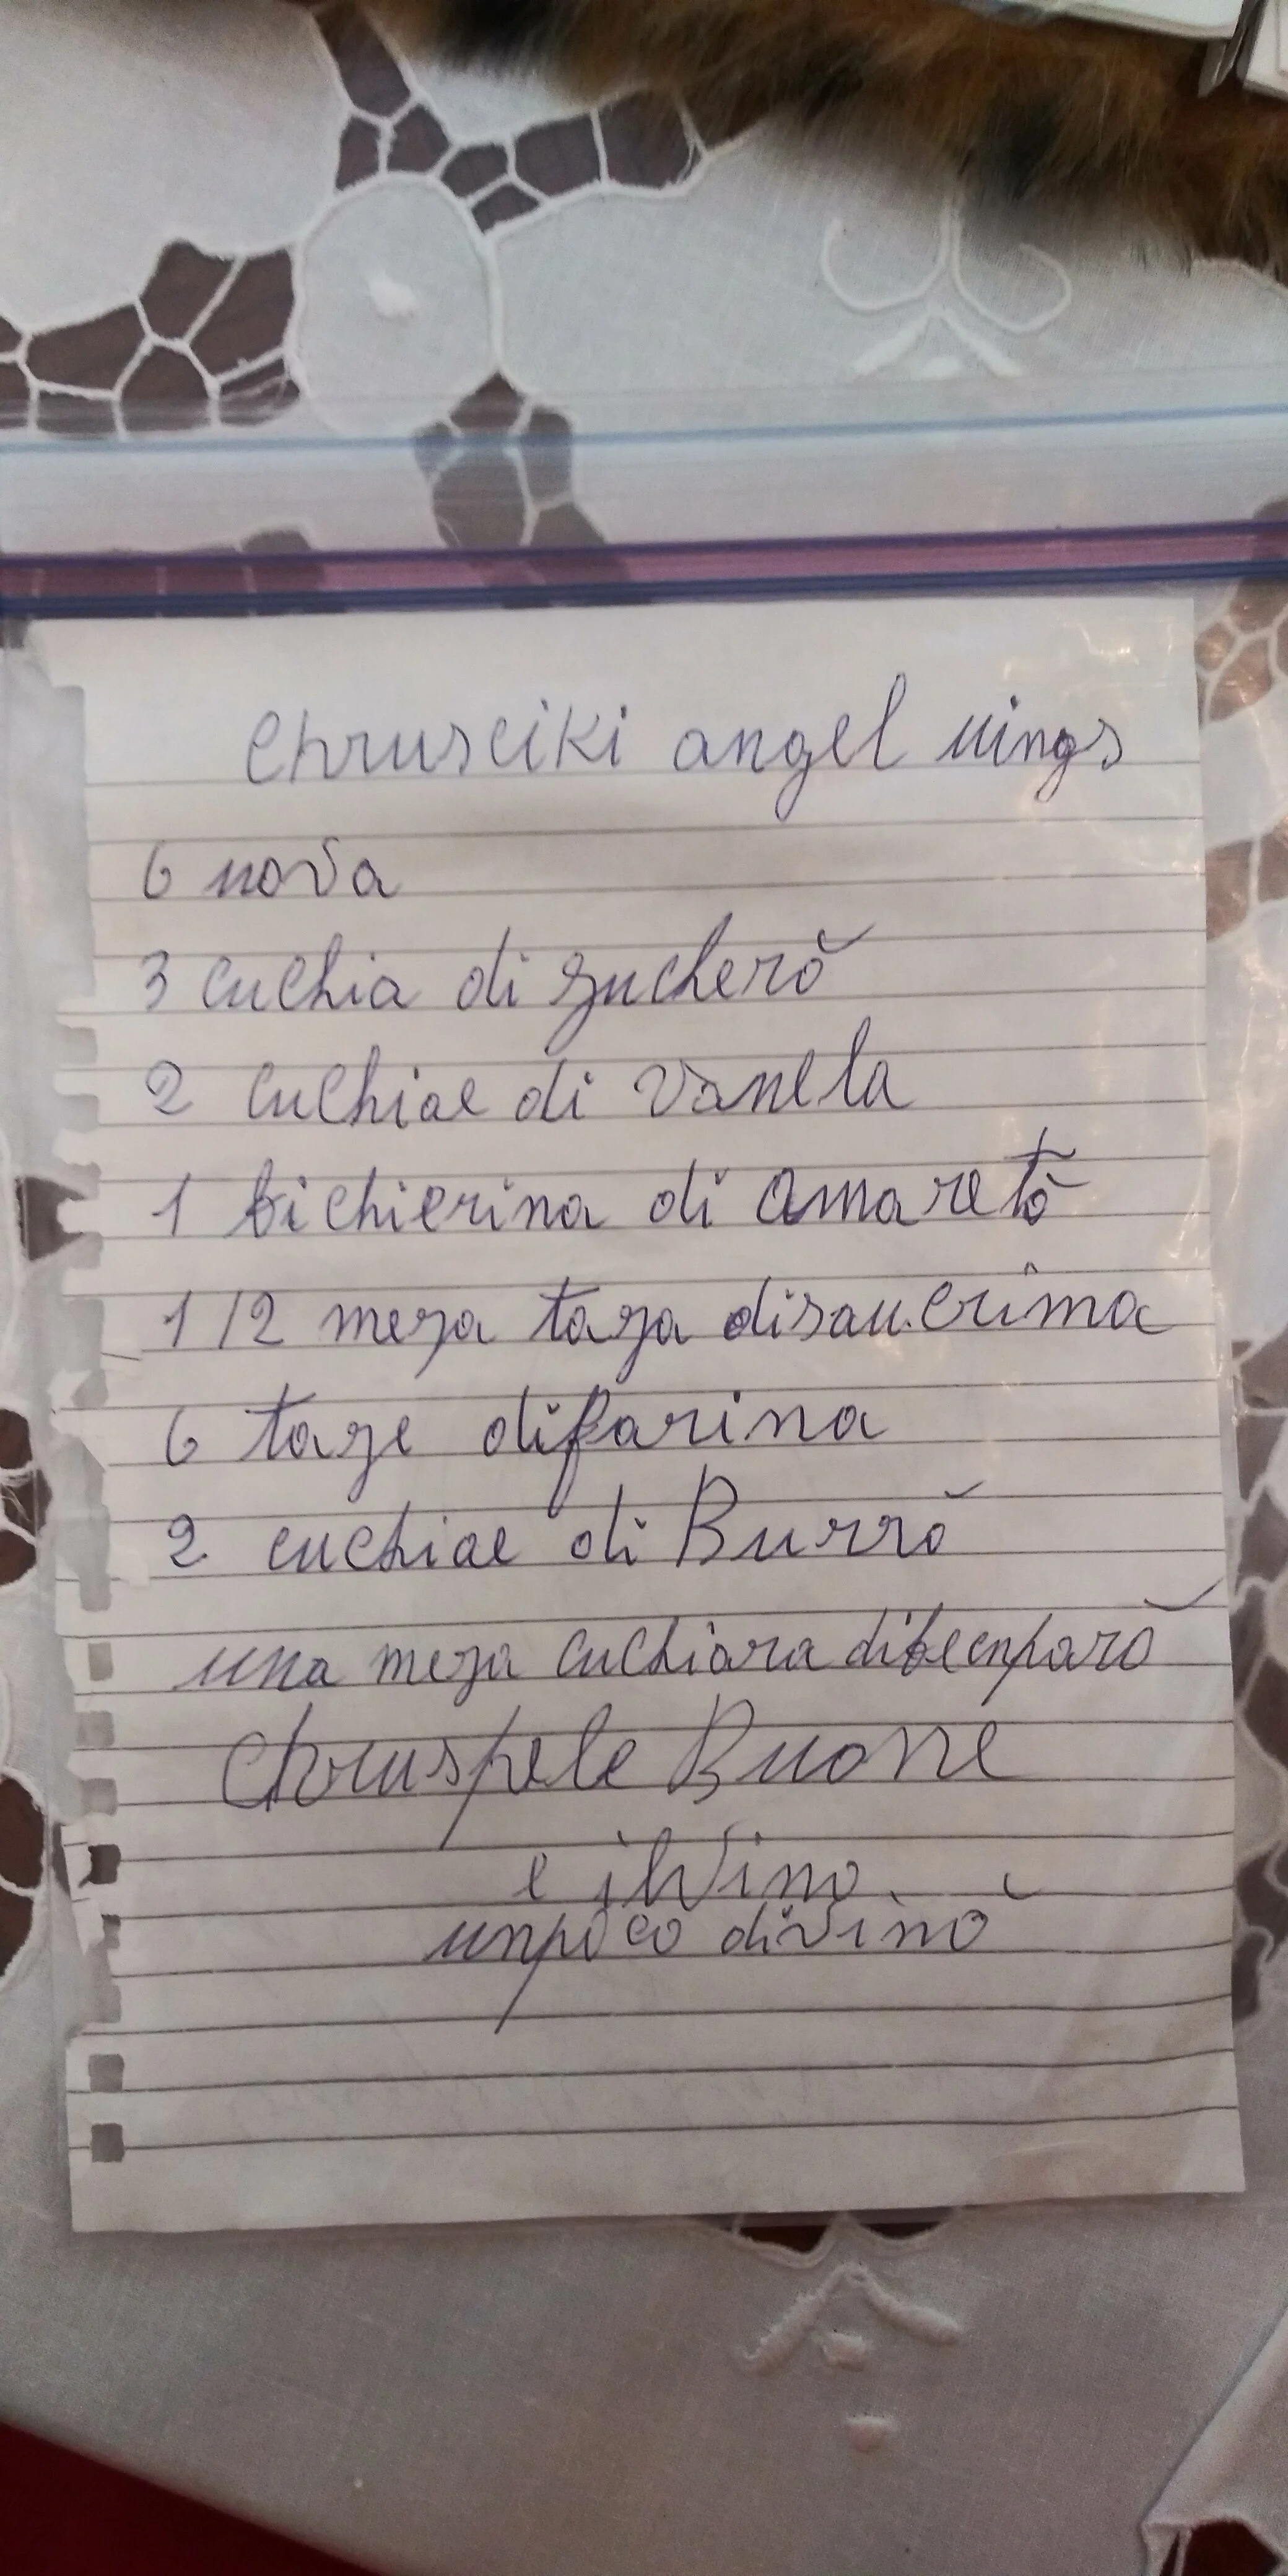 Chrusciki angel wings
6 uova
3 cuchia di zucherŏ
2 cuchiae di vanela
1 bichierina di amaretŏ
1/2 meza taza disau.crima
6 taze difarina
2 cuchiae di Burrŏ
una meza cuchiara dibecnparŏ
Chruspele Buone
e ilvino
unpoco divinŏ